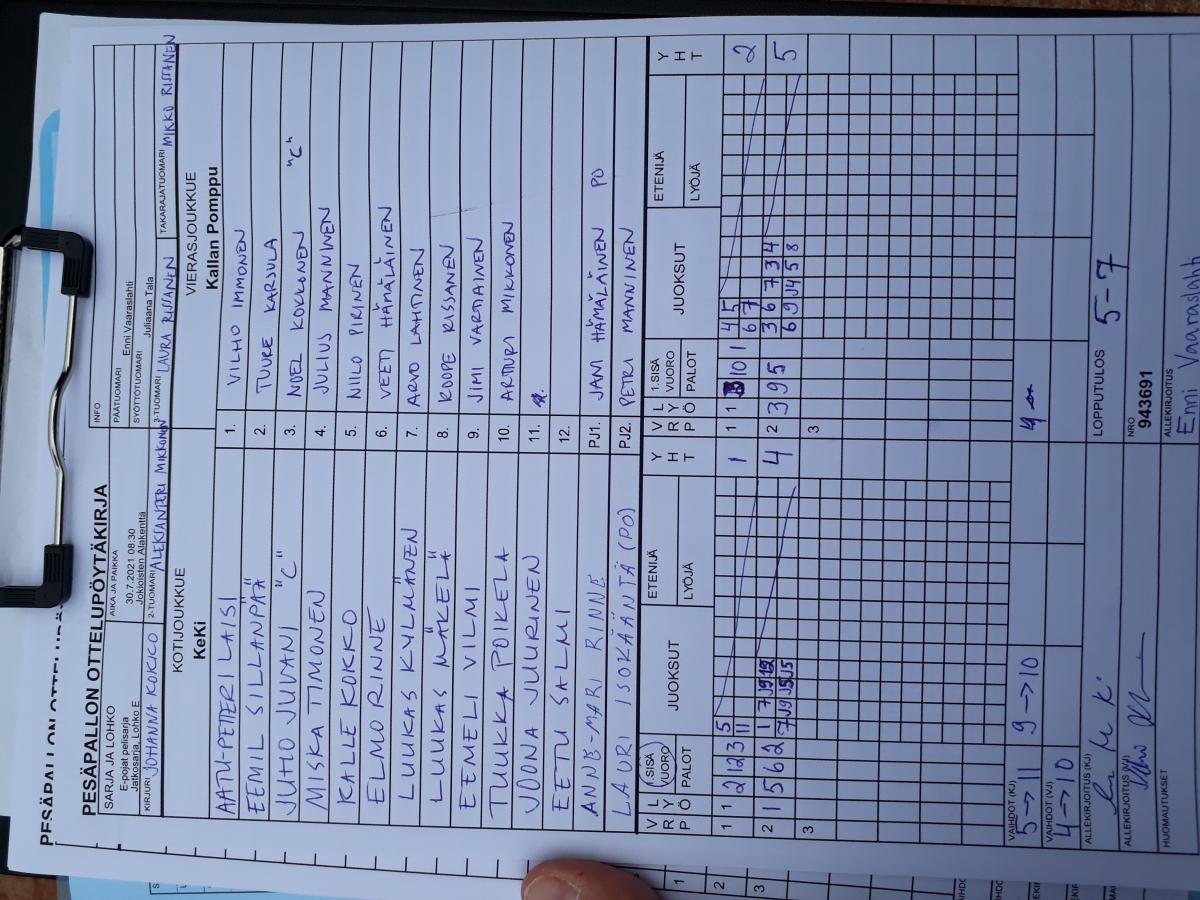 PESÄPALLON OTTELUPÖYTÄKIRJA
SARJA JA LOHKO
E-pojat pelisarja
Jatkosarja, Lohko E
AIKA JA PAIKKA
30.7.2021 08:30
Jokioisten Alakenttä
INFO
PÄÄTUOMARI Enni Vaaraslahti
SYÖTTÖTUOMARI Juliaana Tala
KIRJURI JOHANNA KOKKO
2-TUOMARI ALEKSANTERI MIKKONEN
3-TUOMARI LAURA RISSANEN
TAKARAJATUOMARI MIKKO RISSANEN
KOTIJOUKKUE
KeKi
VIERASJOUKKUE
Kallan Pomppu
AATU-PETTERI LAISI 1. VILHO IMMONEN
EEMIL SILLANPÄÄ 2. TUURE KARJULA
JUHO JUVANI "C" 3. NOEL KOKKONEN "C"
MISKA TIMONEN 4. JULIUS MANNINEN
KALLE KOKKO 5. NIILO PIRINEN
ELMO RINNE 6. VEETI HÄMÄLÄINEN
LUUKAS KYLMÄNEN 7. ARVO LAHTINEN
LUUKAS MÄKELÄ 8. ROOPE RISSANEN
EEMELI VILMI 9. JIMI VARTIAINEN
TUUKKA POIKELA 10. ARTTURI MIKKONEN
JOONA JUURINEN 11.
EETU SALMI 12.
ANNE-MARI RINNE PJ1. JANI HÄMÄLÄINEN PO
LAURI ISOKÄÄNTÄ (PO) PJ2. PETRI MANNINEN
VRP LYÖ 1.SISÄ VUORO PALOT JUOKSUT ETENIJÄ LYÖJÄ YHT
VRP LYÖ 1.SISÄ VUORO PALOT JUOKSUT ETENIJÄ LYÖJÄ YHT
1 1 2 12 3 5 11 1
1 1 10 1 4 5 6 7 2
2 1 5 6 2 4
2 3 9 5 3 6 7 3 4 6 9 5 8 5
3
3
VAIHDOT (KJ)
5→11 9→10
VAIHDOT (VJ)
4→10
ALLEKIRJOITUS (KJ)
LOPPUTULOS 5-7
ALLEKIRJOITUS (VJ)
NRO
943691
HUOMAUTUKSET
ALLEKIRJOITUS
Enni Vaaraslahti